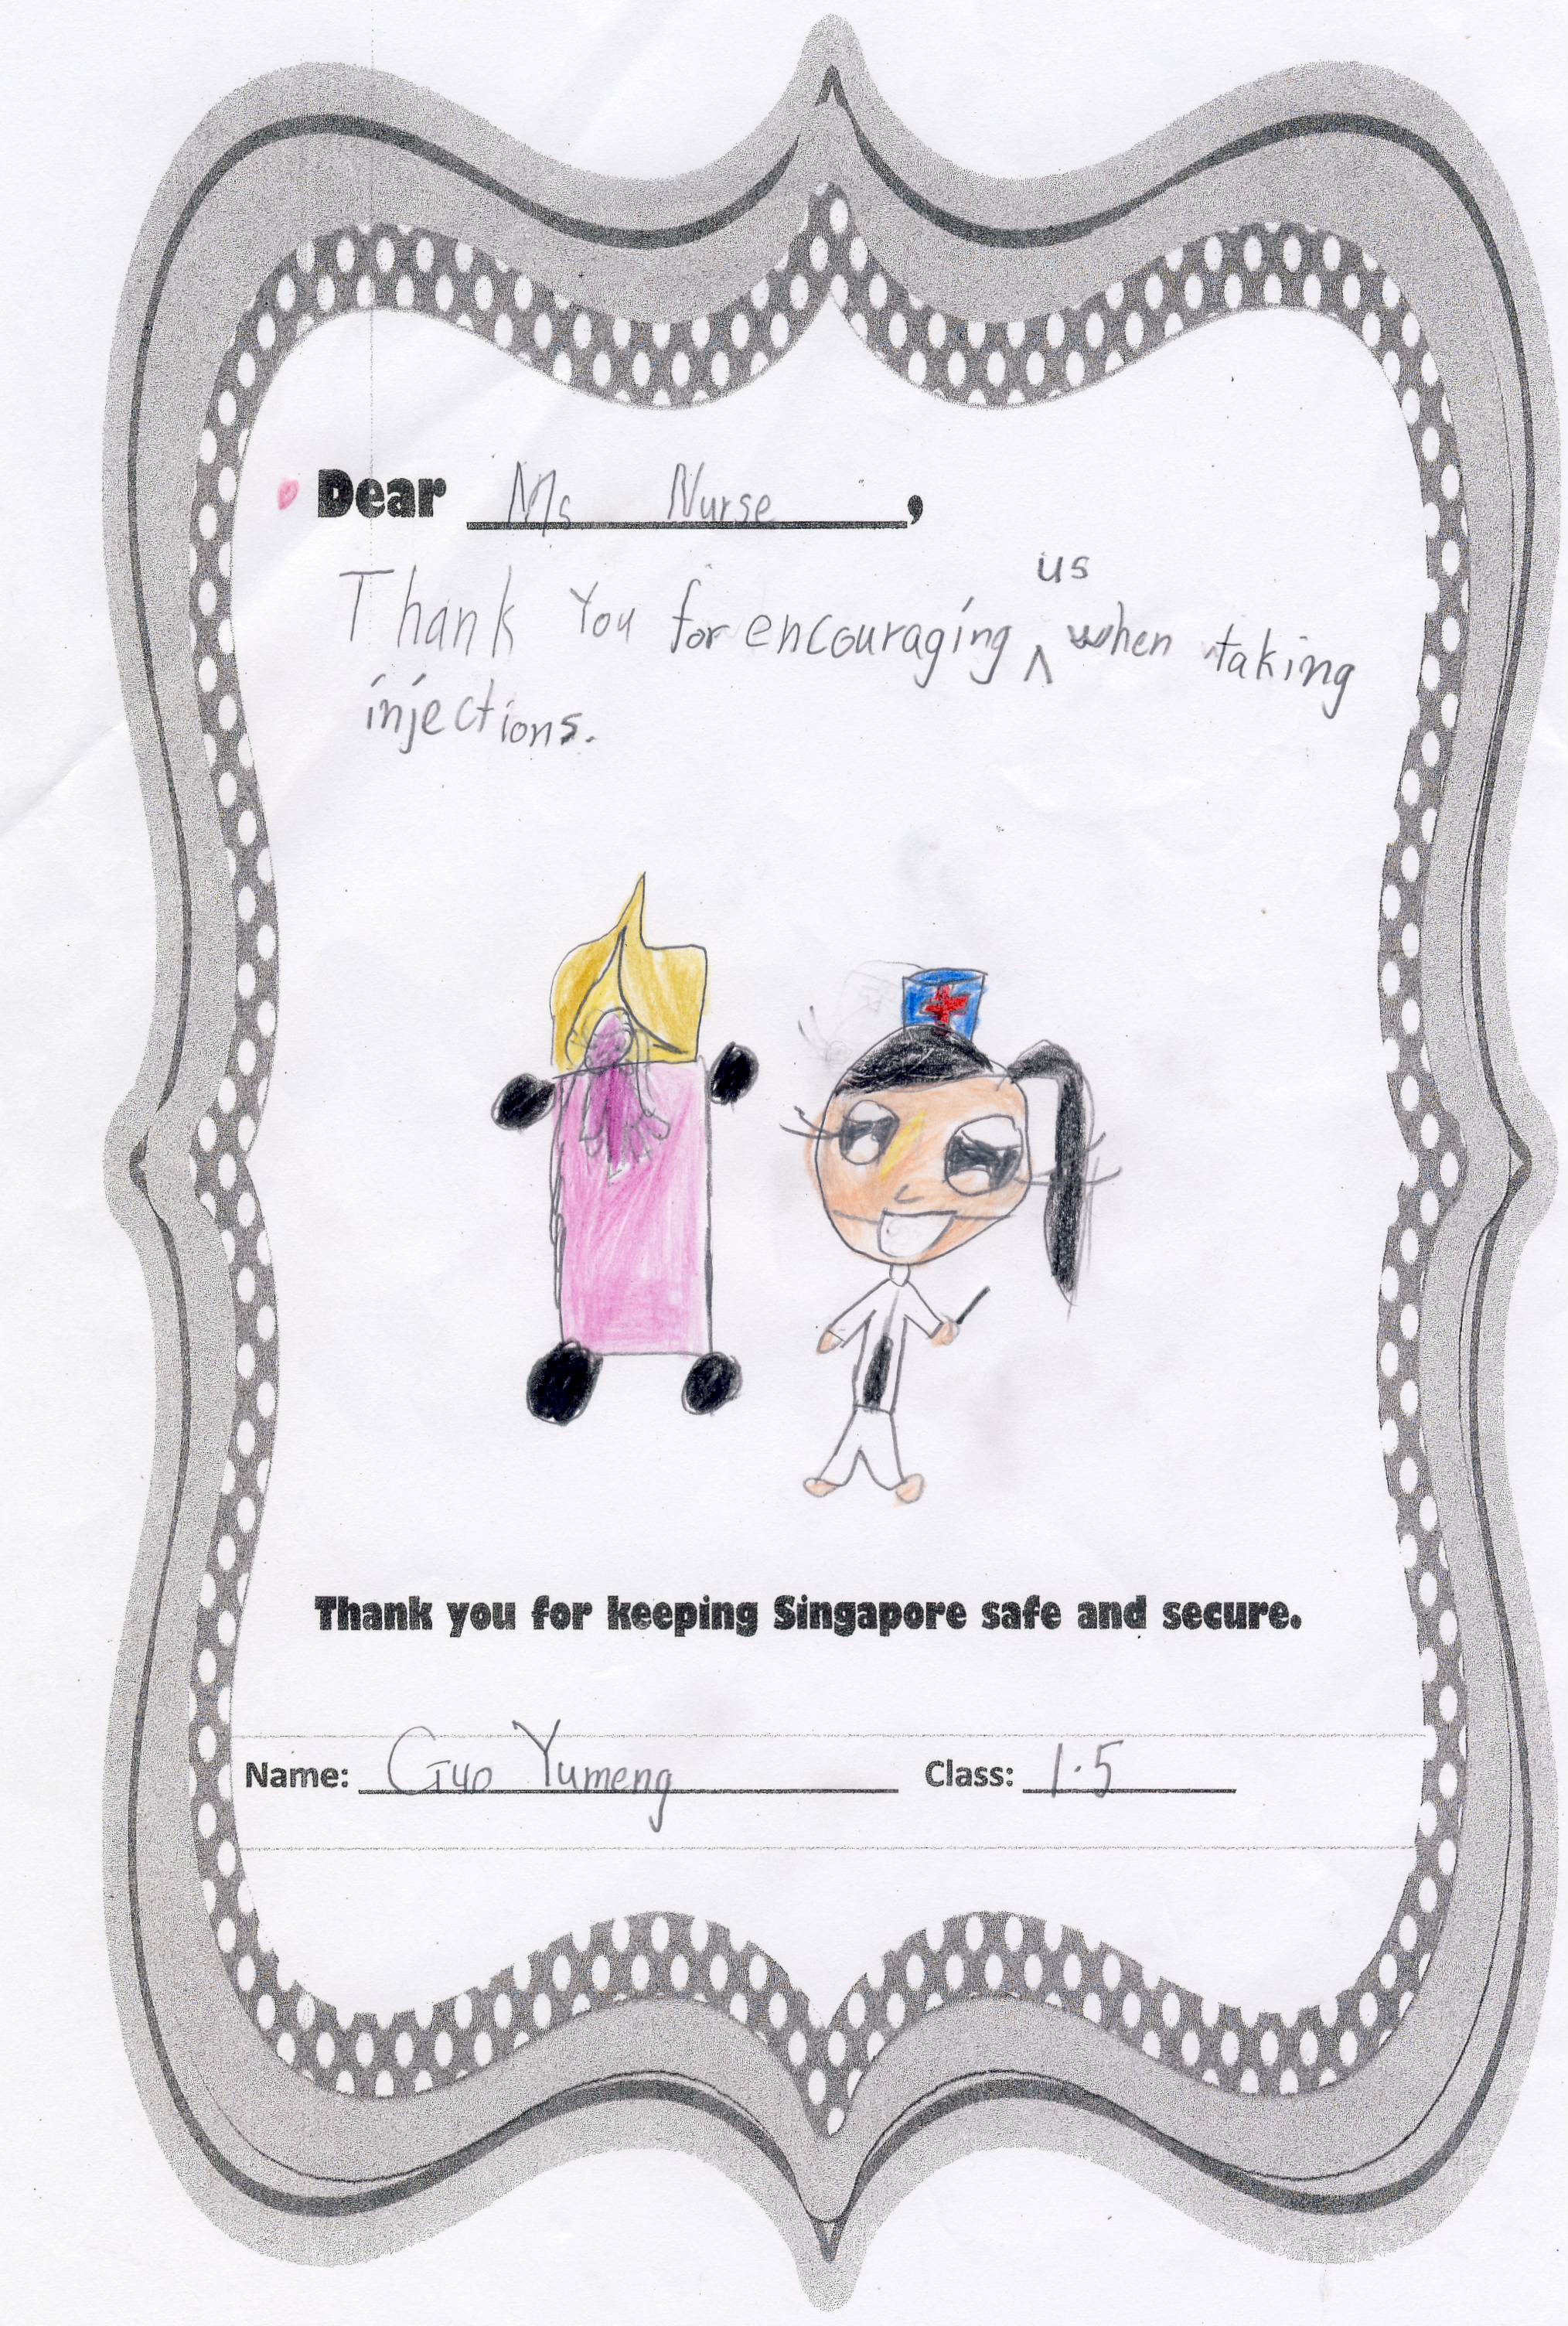 Dear Ms Nurse,
Thank You for encouraging us when taking
injections.
Thank you for keeping Singapore safe and secure.
Name: Guo Yumeng Class: 1.5